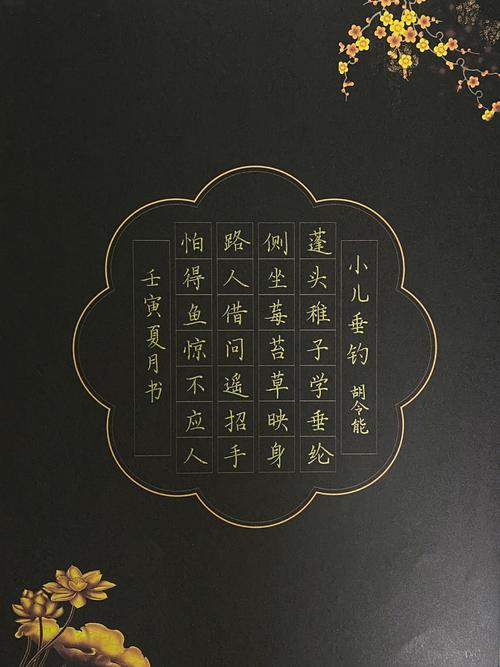 小儿垂钓 胡令能
蓬头稚子学垂纶
侧坐莓苔草映身
路人借问遥招手
怕得鱼惊不应人
壬寅夏月书